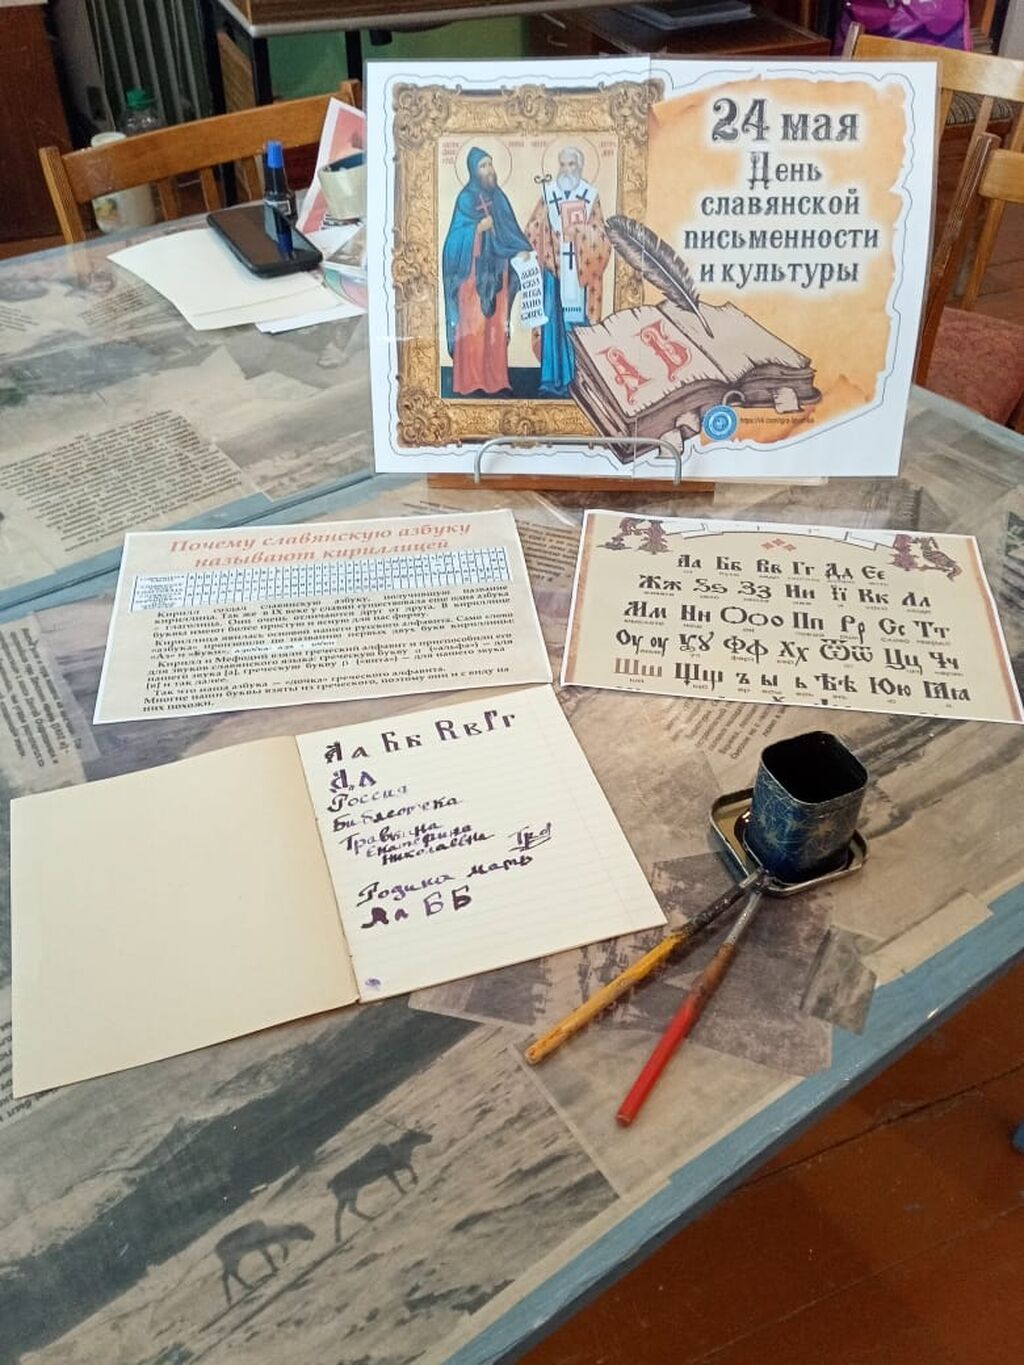 24 мая
День
славянской
письменности
и культуры
А В
Почему славянскую азбуку
называют кириллицей
Кирилл создал славянскую азбуку, получившую название
кириллица. Так же в IX веке у славян существовала ещё одна азбука
– глаголица. Они очень отличаются друг от друга. В кириллице
буквы имеют более простую и ясную для нас форму.
Кириллица явилась основой нашего русского алфавита. Само слово
«азбука» произошло по названию первых двух букв кириллицы:
«Аз» и «Буки»
Кирилл и Мефодий взяли греческий алфавит и приспособили его
для звуков славянского языка: греческую букву α («альфа») – для
нашего звука [а], греческую букву β («вита») – для нашего звука
[в] и так далее.
Так что наша азбука – «дочка» греческого алфавита.
Многие наши буквы взяты из греческого, поэтому они и с виду на
них похожи.
Аа Бб Вв Гг Дд Єє
Жж Ѕѕ Зз Ии Її Кк Лл
Мм Нн Оо Пп Рр Сс Тт
Фф Хх Цц Чч
Шш Щщ ъ ы ь Ѣѣ Юю
Аа Бб Вв Гг
Россия
Библиотека
Екатерина
Николаевна
Родина мать
Аа Б Б